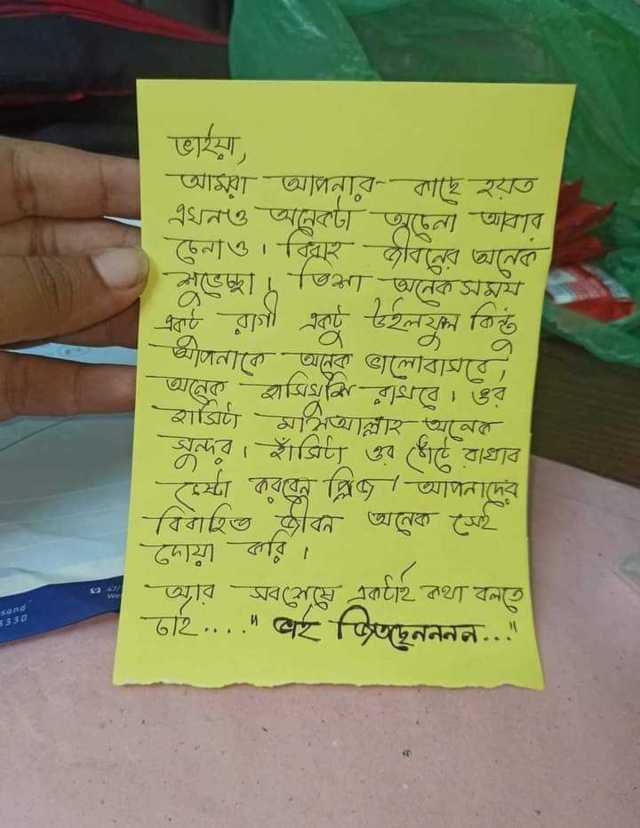 ভাইয়া,
আমরা আপনার কাছে হয়ত
এমনও অনেকটা অচেনা আবার
চেনাও। বিবাহ জীবনের অনেক
শুভেচ্ছা। তিশা অনেক সময়
একটু রাগী একটু উইলফুল কিন্তু
আপনাকে অনেক ভালোবাসবে,
অনেক হাসিখুশি রাখবে। ওর
হাসিটা মাশিআল্লাহ অনেক
সুন্দর। হাঁসিটা ওর ঠোঁটে রাখার
চেষ্টা করবেন প্লিজ। আপনাদের
বিবাহিত জীবন অনেক সেই
দোয়া করি।
আর সবশেষে একটাই কথা বলতে
চাই...."ভাই জিতছেনননন..."
sand
3330